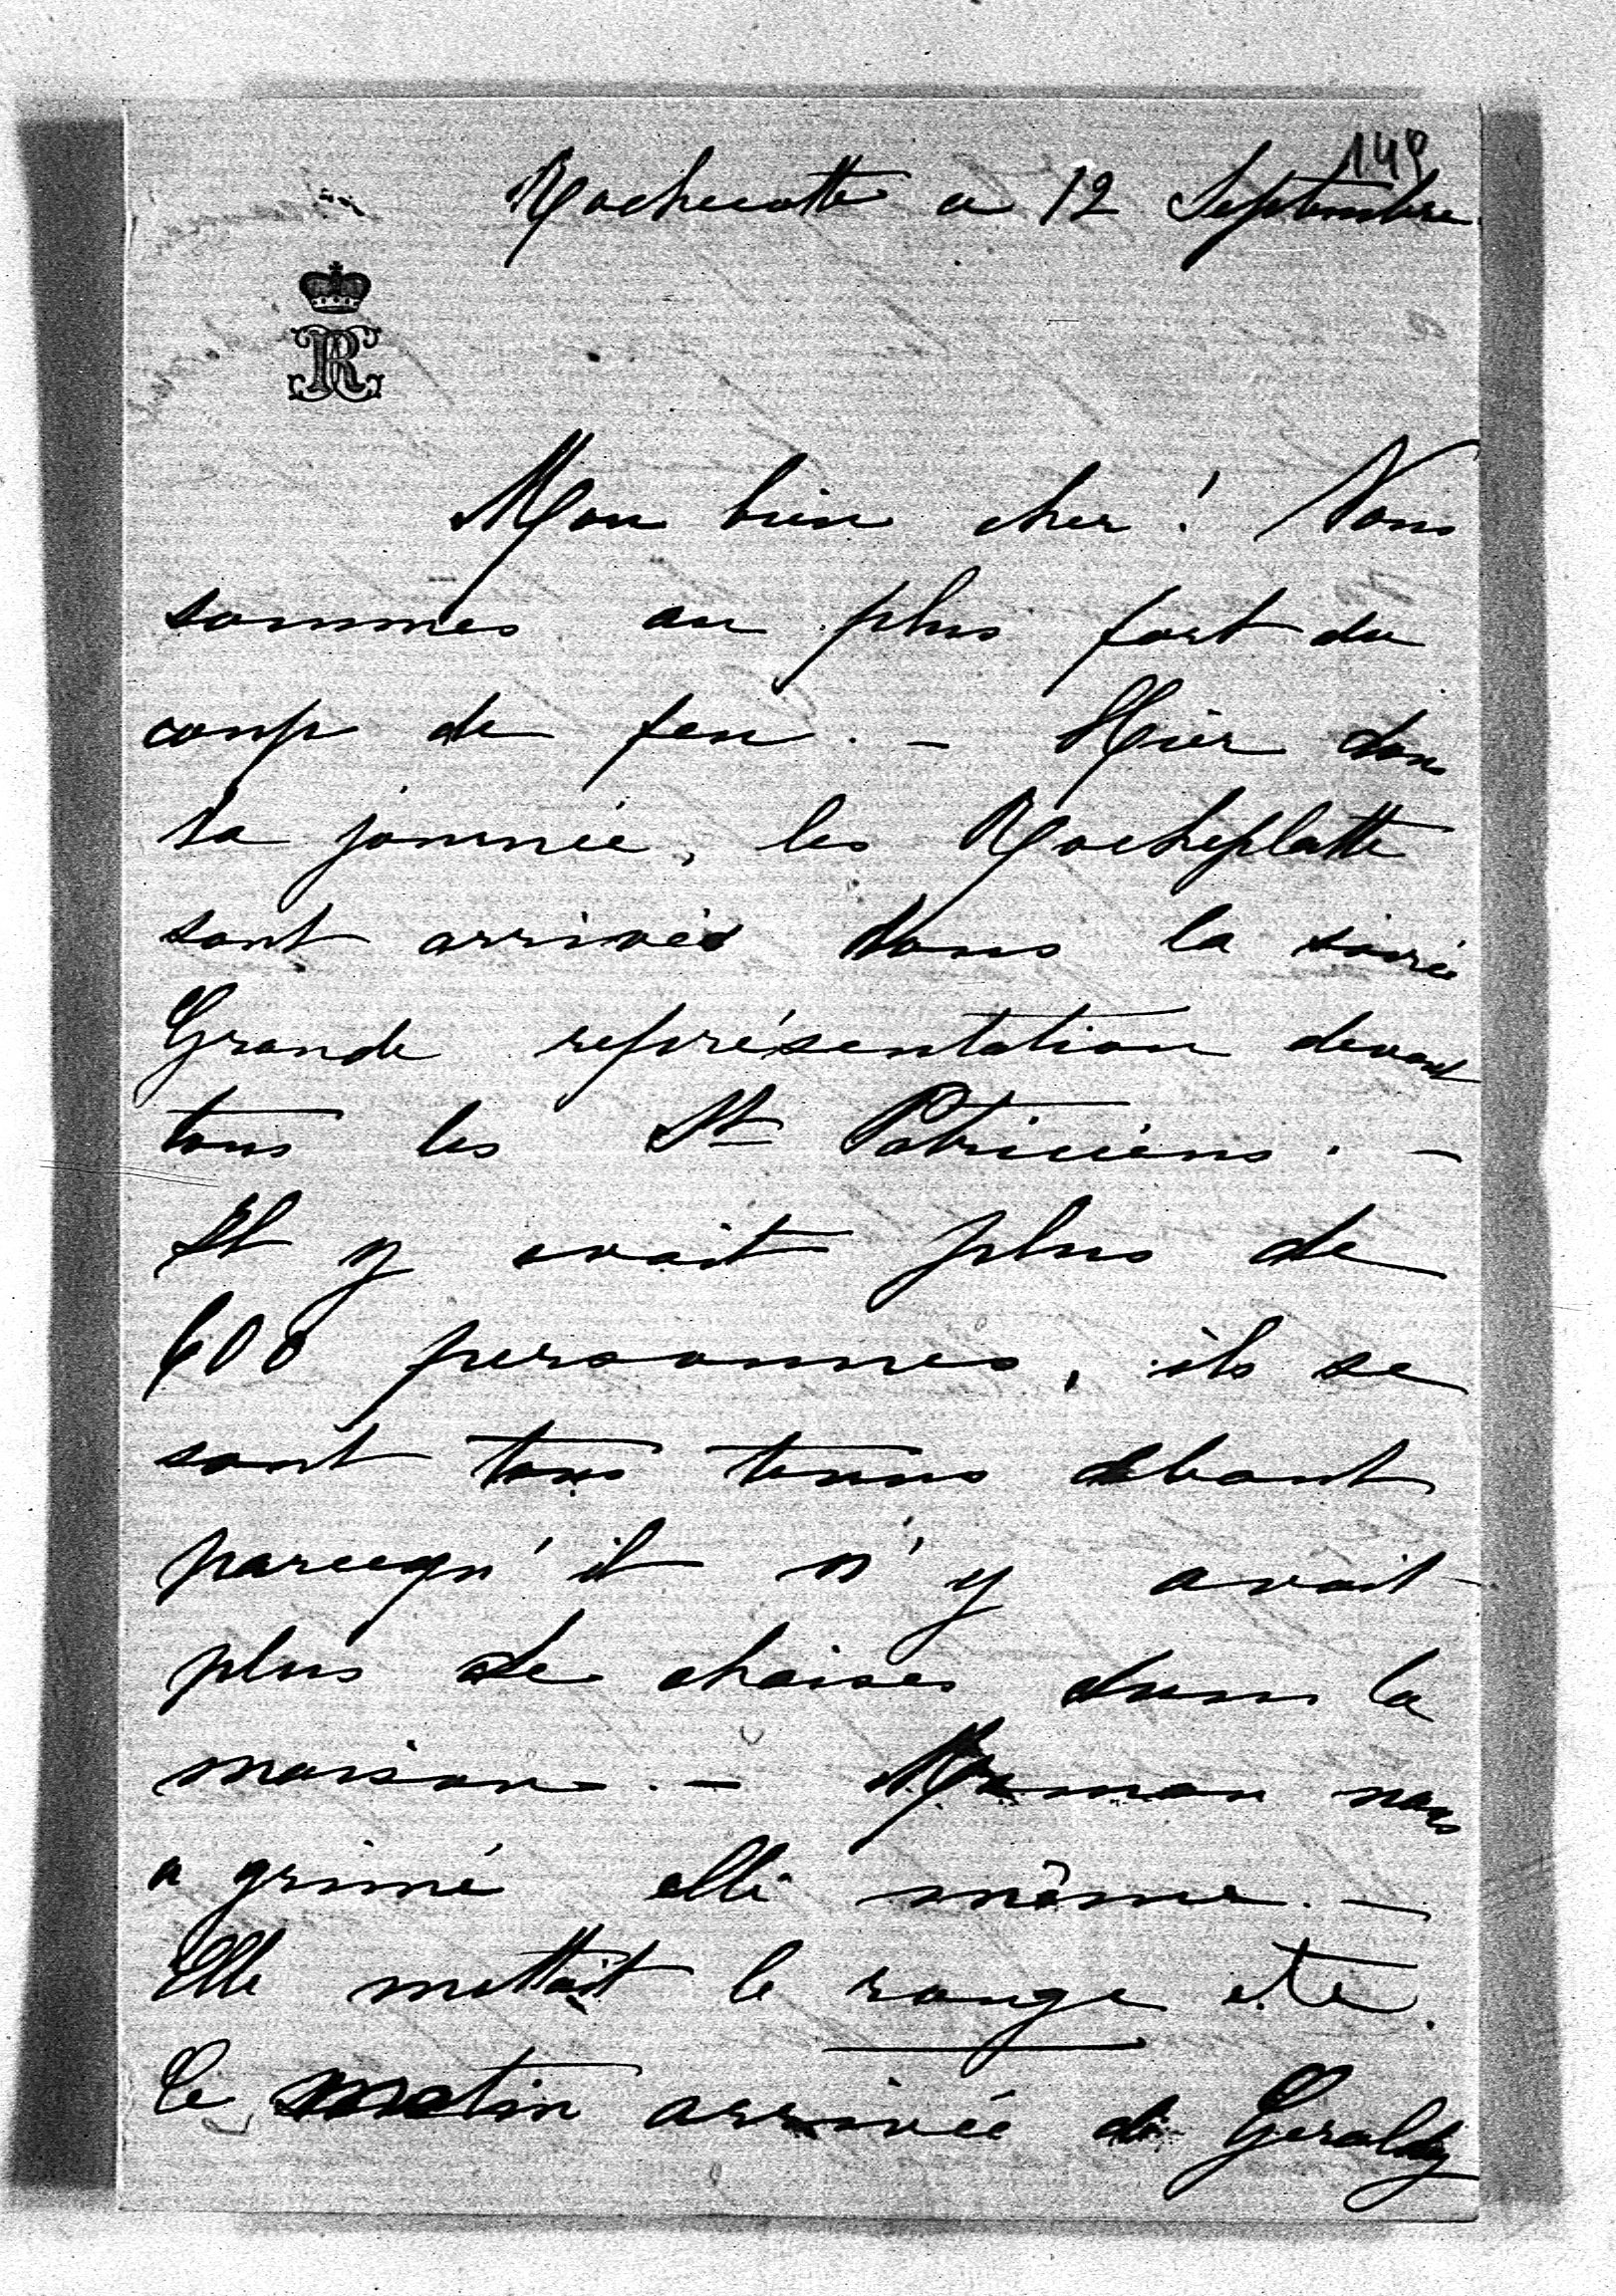 149
Rochecotte ce 12 Septembre
R
Mon bien cher! Nous
sommes au plus fort du
coup de feu. - Hier dans
la journée, les Rocheplatte
sont arrivés dans la soirée
Grande représentation devant
tous les St Patriciens. -
Il y avait plus de
600 personnes, ils se
sont tous tenus debout
parcequ'il n'y avait
plus de chaises dans la
maison. - Maman nous
a grimé elle même. -
Elle mettait le rouge etc.
Ce matin arrivée de Geraldy